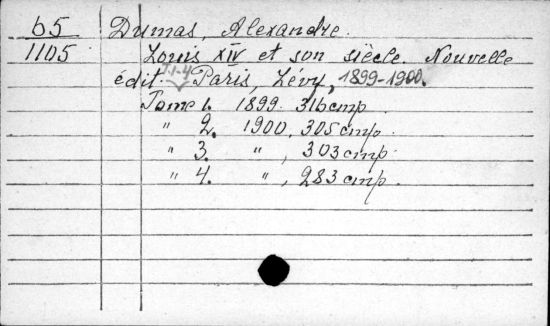 65 Dumas, Alexandre.
1105 Louis XIV et son siècle. Nouvelle
édit. T.1-4 Paris, Lévy, 1899-1900.
Tome 1. 1899. 316 стр.
" 2. 1900, 305 стр.
" 3. ", 303 стр.
" 4. ", 283 стр.